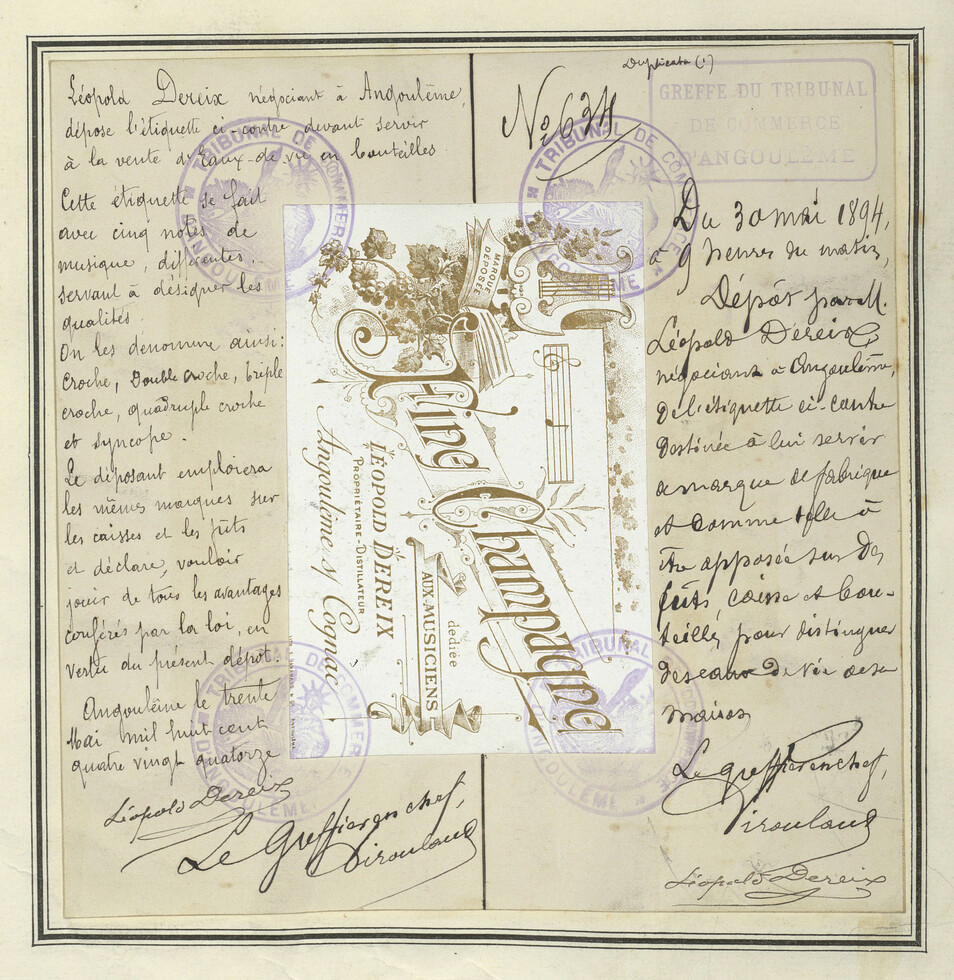 Léopold Dereix négociant à Angoulême,
dépose l'étiquette ci-contre devant servir
à la vente d'Eaux-de-vie en bouteilles.
Cette étiquette se fait
avec cinq notes de
musique, différentes,
servant à désigner les
qualités.
On les dénomme ainsi:
Croche, Double croche, triple
croche, quadruple croche
et syncope.
Le déposant emploiera
les mêmes marques sur
les caisses et les fûts
et déclare, vouloir
jouir de tous les avantages
conférés par la loi, en
vertu du présent dépôt.
Angoulême le trente
Mai mil huit cent
quatre vingt quatorze
Léopold Dereix
Le Greffier en chef,
Viroulaud
MARQUE
DÉPOSÉE
Fine Champagne
dédiée
AUX MUSICIENS
LÉOPOLD DEREIX
PROPRIÉTAIRE-DISTILLATEUR
Angoulême & Cognac
Duplicata (1)
No 634
GREFFE DU TRIBUNAL
DE COMMERCE
D'ANGOULÊME
Du 30 mai 1894,
à 9 heures du matin,
Dépôt par M.
Léopold Dereix,
négociant à Angoulême,
de l'étiquette ci-contre
destinée à lui servir
de marque de fabrique
et comme telle à
être apposée sur des
fûts, caisse et bou-
teilles pour distinguer
des eaux de vie de sa
maison
Le greffier en chef,
Viroulaud
Léopold Dereix
TRIBUNAL DE COMMERCE
ANGOULÊME
TRIBUNAL DE COMMERCE
ANGOULÊME
TRIBUNAL DE COMMERCE
ANGOULÊME
TRIBUNAL
ANGOULÊME